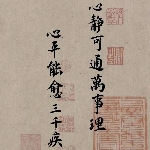 心靜可通萬事理
心平能愈三千疾